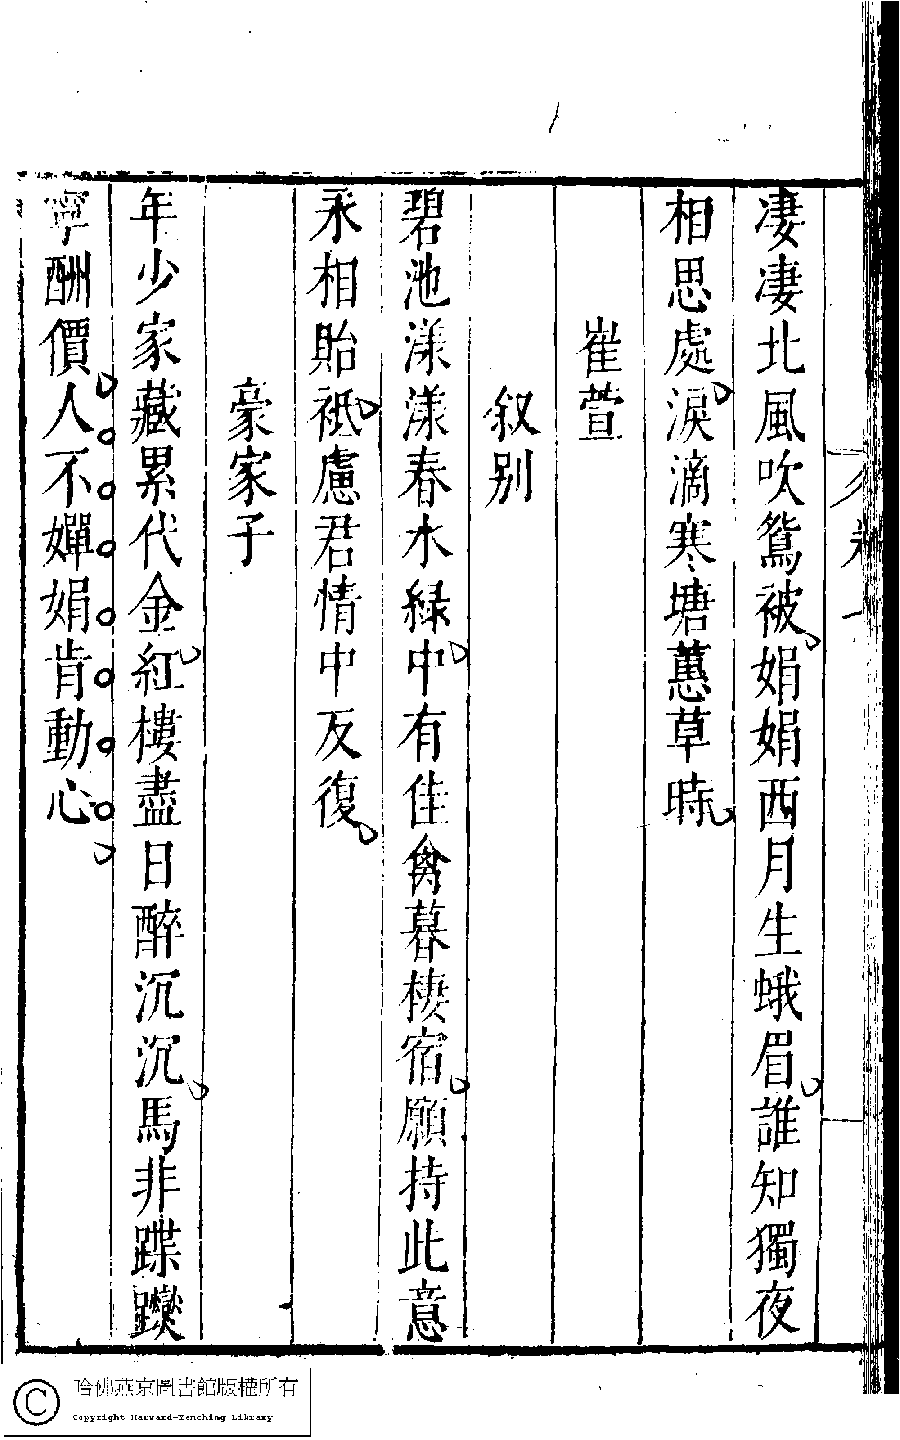 凄凄北風吹鴛被娟娟西月生蛾眉誰知獨夜
相思處淚滴寒塘蕙草時
崔萱
叙别
碧池漾漾春水緑中有佳禽暮棲宿願持此意
永相貽祗慮君情中反復
豪家子
年少家藏累代金紅樓盡日醉沉沉馬非蹀躞
寧酬價人不嬋娟肯動心
哈佛燕京圖書館版權所有
Copyright Harvard-Yenching Library